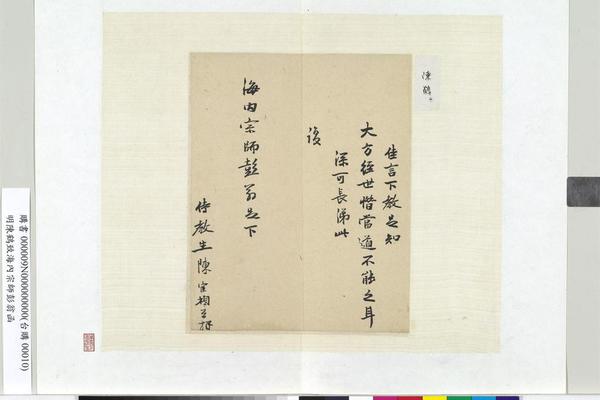 陳鶴
佳言下教足知
大方經世惜當道不能之耳
深可長涕此
復
海內宗師彭翁足下
侍教生陳
購書 000009N000000000(台購 00010)
明陳鶴致海內宗師彭翁函